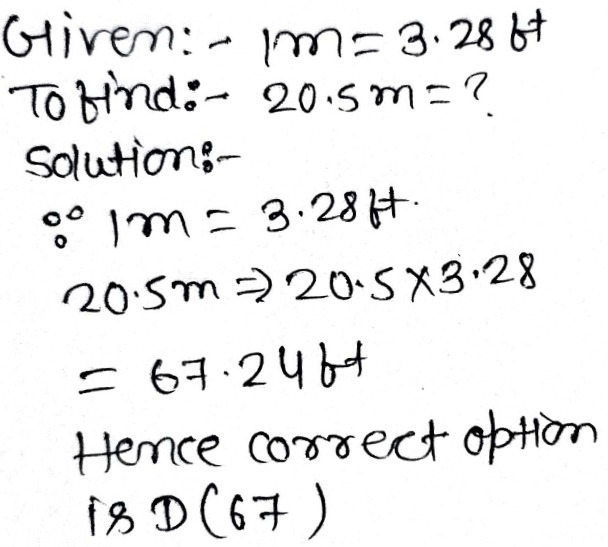 Given:- 1m = 3.28 ft
To find:- 20.5 m = ?
Solution:-
∵ 1m = 3.28 ft.
20.5m ⇒ 20.5 × 3.28
= 67.24 ft
Hence correct option
is D (67)